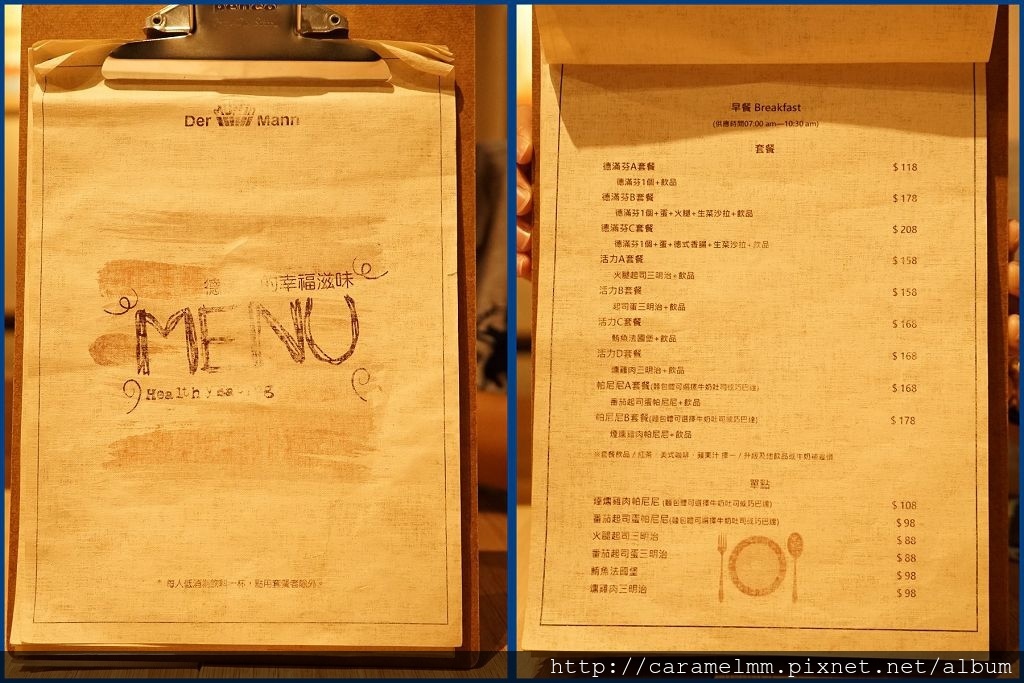 Der Mann
德 的幸福滋味
MENU
Healthy eating
* 每人低消為飲料一杯,點用套餐者除外。
早餐 Breakfast
(供應時間07:00 am—10:30 am)
套餐
德滿芬A套餐 $118
德滿芬1個+飲品
德滿芬B套餐 $178
德滿芬1個+蛋+火腿+生菜沙拉+飲品
德滿芬C套餐 $208
德滿芬1個+蛋+德式香腸+生菜沙拉+飲品
活力A套餐 $158
火腿起司三明治+飲品
活力B套餐 $158
起司蛋三明治+飲品
活力C套餐 $168
鮪魚法國堡+飲品
活力D套餐 $168
燻雞肉三明治+飲品
帕尼尼A套餐(麵包體可選擇牛奶吐司或巧巴達) $168
番茄起司蛋帕尼尼+飲品
帕尼尼B套餐(麵包體可選擇牛奶吐司或巧巴達) $178
煙燻雞肉帕尼尼+飲品
※套餐飲品/紅茶、美式咖啡、蘋果汁 擇一/升級其他飲品或牛奶補差價
單點
煙燻雞肉帕尼尼 (麵包體可選擇牛奶吐司或巧巴達) $108
番茄起司蛋帕尼尼(麵包體可選擇牛奶吐司或巧巴達) $98
火腿起司三明治 $88
番茄起司蛋三明治 $88
鮪魚法國堡 $98
燻雞肉三明治 $98
http://caramelmm.pixnet.net/album